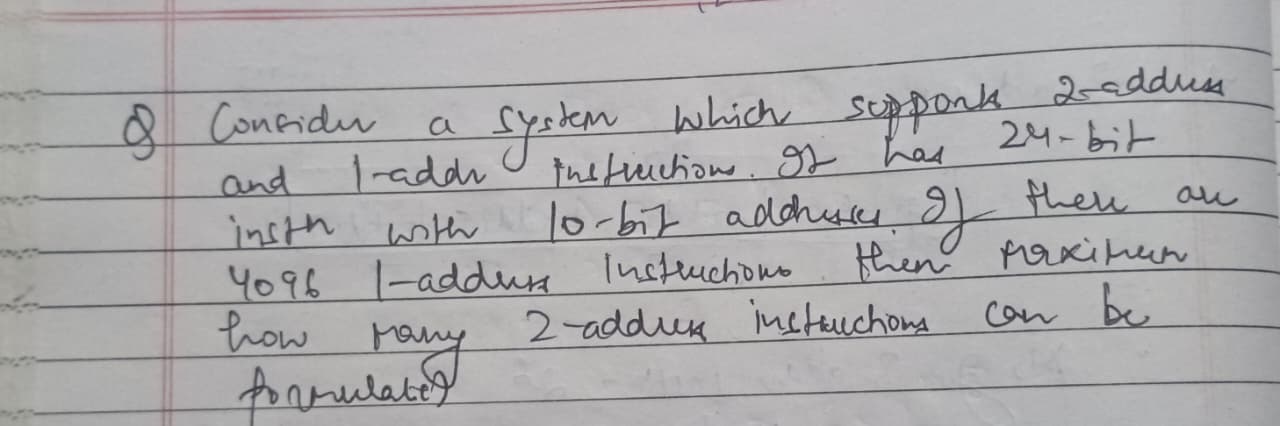 Q Consider a system which supports 2-address
and 1-addr instructions. It has 24-bit
instn with 10-bit addresses. If there are
4096 1-address Instructions then maximum
how many 2-address instructions can be
formulated